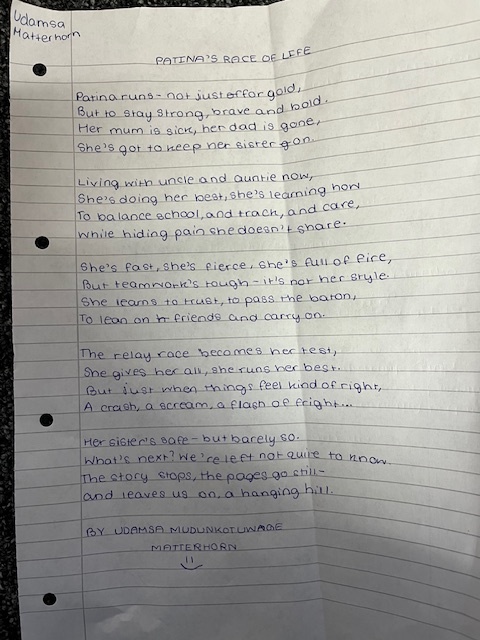 Udamsa
Matterhorn
PATINA'S RACE OF LIFE
Patina runs - not just for gold,
But to stay strong, brave and bold.
Her mum is sick, her dad is gone,
She's got to keep her sister going.
Living with uncle and auntie now,
She's doing her best, she's learning how
To balance school, and track, and care,
While hiding pain she doesn't share.
She's fast, she's fierce, she's full of fire,
But teamwork's tough - it's not her style.
She learns to trust, to pass the baton,
To lean on friends and carry on.
The relay race becomes her test,
She gives her all, she runs her best.
But just when things feel kind of right,
A crash, a scream, a flash of fright...
Her sister's safe - but barely so.
What's next? We're left not quite to know.
The story stops, the pages go still-
and leaves us on, a hanging hill.
BY UDAMSA MUDUNKOTUWAGE
MATTERHORN